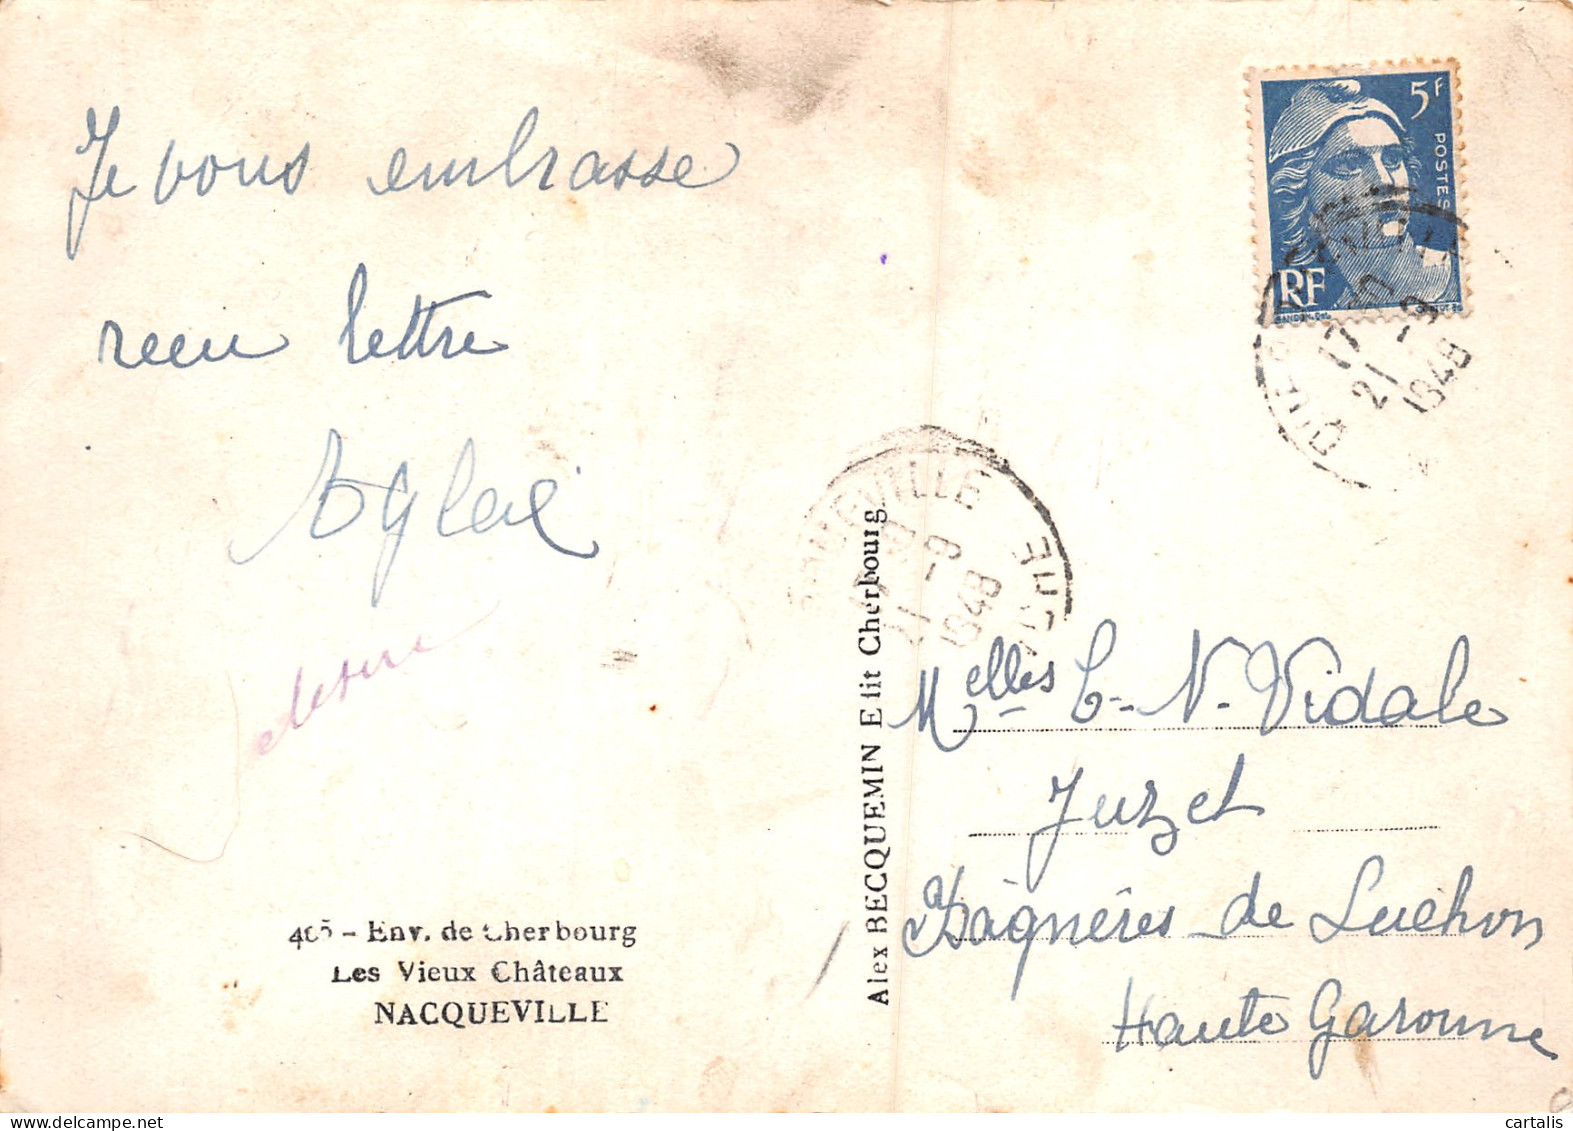 Je vous embrasse
reçu lettre
Aglaé
405 - Env. de Cherbourg
Les Vieux Châteaux
NACQUEVILLE
Alex BECQUEMIN Edit Cherbourg.
5F
POSTES
RF
17
21 -9
1948
QUEVILLE
21 -9
1948
Melles C. N. Vidale
Juzet
Bagnères de Luchon
Haute Garonne
www.delcampe.net
cartalis